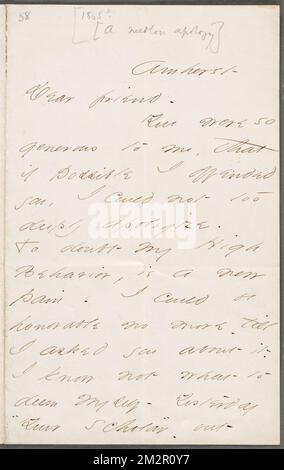 58
[1863?
[A needless apology]
Amherst
Dear friend.
You were so
generous to me, that
if possible I offended
you, I could not too
deeply apologize.
To doubt my High
Behavior, is a new
pain. I could be
honorable no more, till
I asked you about it.
I know not what to
deem myself. Yesterday
"Your Scholar" but
alamy
Image ID: 2M2R0Y7
www.alamy.com